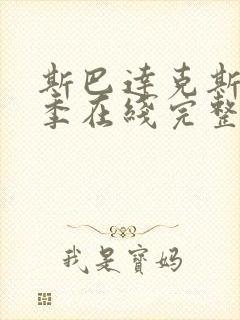 斯巴达克斯
季在綫完整
我是寶妈